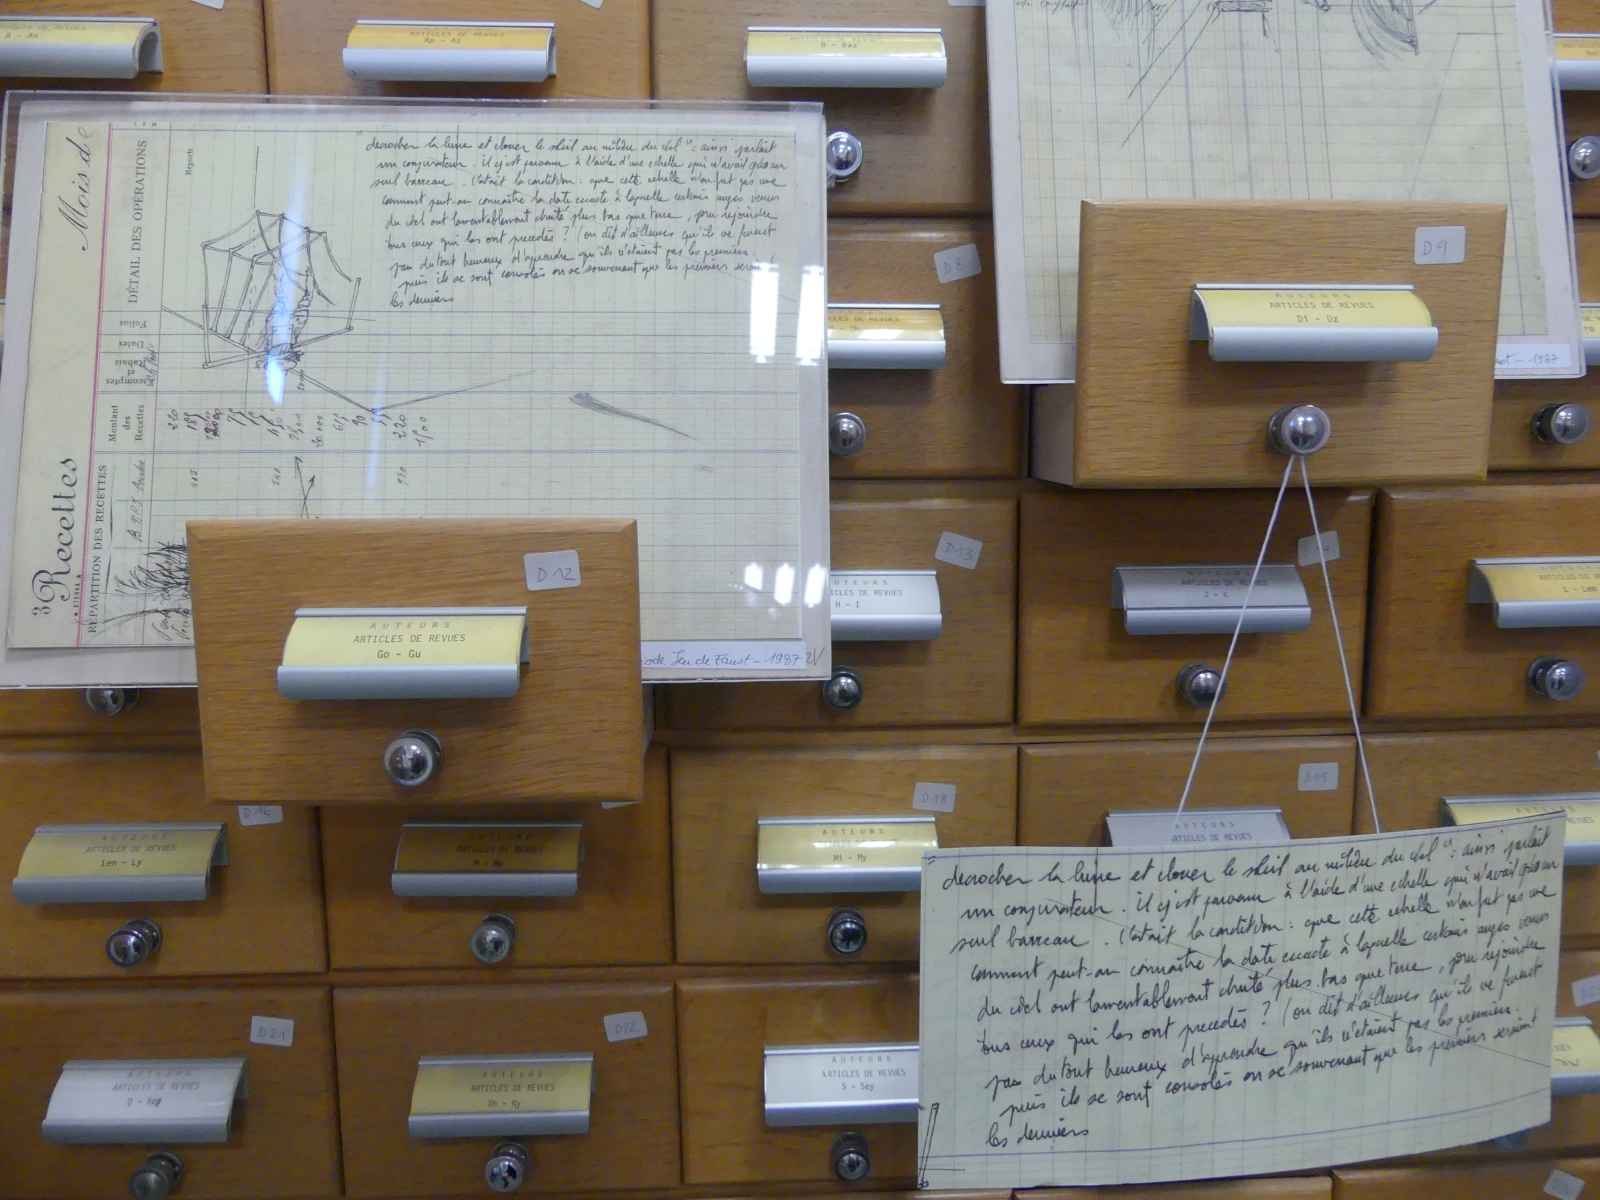 A - An
ARTICLES DE REVUES
Ap - Az
ARTICLES DE REVUES
B - Baz
Mois de
DÉTAIL DES OPÉRATIONS
Reports
Folios
Dates
Rabais et Escomptes
Montant des Recettes
3 Recettes
RÉPARTITION DES RECETTES
décrocher la lune et clouer le soleil au milieu du ciel " : ainsi parlait
un conjurateur. il y est parvenu à l'aide d'une echelle qui n'avait qu'un
seul barreau. C'était la condition : que cette echelle n'en fut pas une
comment peut-on connaître la date exacte à laquelle certains anges venus
du ciel ont lamentablement chuté plus bas que terre, pour rejoindre
tous ceux qui les ont precedés ? (on dit d'ailleurs qu'ils ne furent
pas du tout heureux d'apprendre qu'ils n'étaient pas les premiers.
puis ils se sont consolés en se souvenant que les premiers seraient
les derniers
220
185
405
540
220
930
1500
Jeu de Faust - 1987
D8
D9
AUTEURS
ARTICLES DE REVUES
Di - Dz
1987
D12
AUTEURS
ARTICLES DE REVUES
Go - Gu
D13
AUTEURS
ARTICLES DE REVUES
H - I
AUTEURS
ARTICLES DE REVUES
J - K
ARTICLES DE REVUES
L - Lem
D16
AUTEURS
ARTICLES DE REVUES
Len - Ly
AUTEURS
ARTICLES DE REVUES
M - Me
D18
AUTEURS
ARTICLES DE REVUES
Mi - My
D19
AUTEURS
ARTICLES DE REVUES
" décrocher la lune et clouer le soleil au milieu du ciel " : ainsi parlait
un conjurateur. il y est parvenu à l'aide d'une echelle qui n'avait qu'un
seul barreau. C'était la condition : que cette echelle n'en fut pas une
comment peut-on connaître la date exacte à laquelle certains anges venus
du ciel ont lamentablement chuté plus bas que terre, pour rejoindre
tous ceux qui les ont precedés ? (on dit d'ailleurs qu'ils ne furent
pas du tout heureux d'apprendre qu'ils n'étaient pas les premiers.
puis ils se sont consolés en se souvenant que les premiers seraient
les derniers
D21
AUTEURS
ARTICLES DE REVUES
Q - Rey
D22
AUTEURS
ARTICLES DE REVUES
Rh - Ry
AUTEURS
ARTICLES DE REVUES
S - Sey